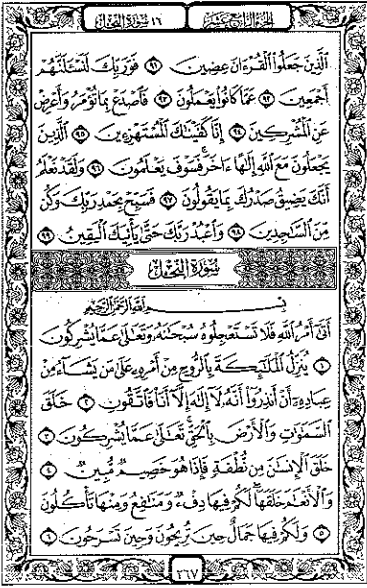 الجزء الرابع عشر
١٦ سورة النحل
الَّذِينَ جَعَلُوا الْقُرْءَانَ عِضِينَ ٩١ فَوَرَبِّكَ لَنَسْـَٔلَنَّهُمْ
أَجْمَعِينَ ٩٢ عَمَّا كَانُوا يَعْمَلُونَ ٩٣ فَاصْدَعْ بِمَا تُؤْمَرُ وَأَعْرِضْ
عَنِ الْمُشْرِكِينَ ٩٤ إِنَّا كَفَيْنَاكَ الْمُسْتَهْزِءِينَ ٩٥ الَّذِينَ
يَجْعَلُونَ مَعَ اللَّهِ إِلَٰهًا ءَاخَرَ فَسَوْفَ يَعْلَمُونَ ٩٦ وَلَقَدْ نَعْلَمُ
أَنَّكَ يَضِيقُ صَدْرُكَ بِمَا يَقُولُونَ ٩٧ فَسَبِّحْ بِحَمْدِ رَبِّكَ وَكُن
مِّنَ السَّاجِدِينَ ٩٨ وَاعْبُدْ رَبَّكَ حَتَّىٰ يَأْتِيَكَ الْيَقِينُ ٩٩
سُورَةُ النَّحْلِ
بِسْمِ اللَّهِ الرَّحْمَٰنِ الرَّحِيمِ
أَتَىٰ أَمْرُ اللَّهِ فَلَا تَسْتَعْجِلُوهُ سُبْحَٰنَهُ وَتَعَٰلَىٰ عَمَّا يُشْرِكُونَ
١ يُنَزِّلُ الْمَلَٰٓئِكَةَ بِالرُّوحِ مِنْ أَمْرِهِ عَلَىٰ مَن يَشَآءُ مِنْ
عِبَادِهِ أَنْ أَنذِرُوا أَنَّهُ لَا إِلَٰهَ إِلَّا أَنَا فَاتَّقُونِ ٢ خَلَقَ
السَّمَٰوَٰتِ وَالْأَرْضَ بِالْحَقِّ تَعَٰلَىٰ عَمَّا يُشْرِكُونَ ٣
خَلَقَ الْإِنسَٰنَ مِن نُّطْفَةٍ فَإِذَا هُوَ خَصِيمٌ مُّبِينٌ ٤
وَالْأَنْعَٰمَ خَلَقَهَا لَكُمْ فِيهَا دِفْءٌ وَمَنَٰفِعُ وَمِنْهَا تَأْكُلُونَ
٥ وَلَكُمْ فِيهَا جَمَالٌ حِينَ تُرِيحُونَ وَحِينَ تَسْرَحُونَ ٦
٢٦٧